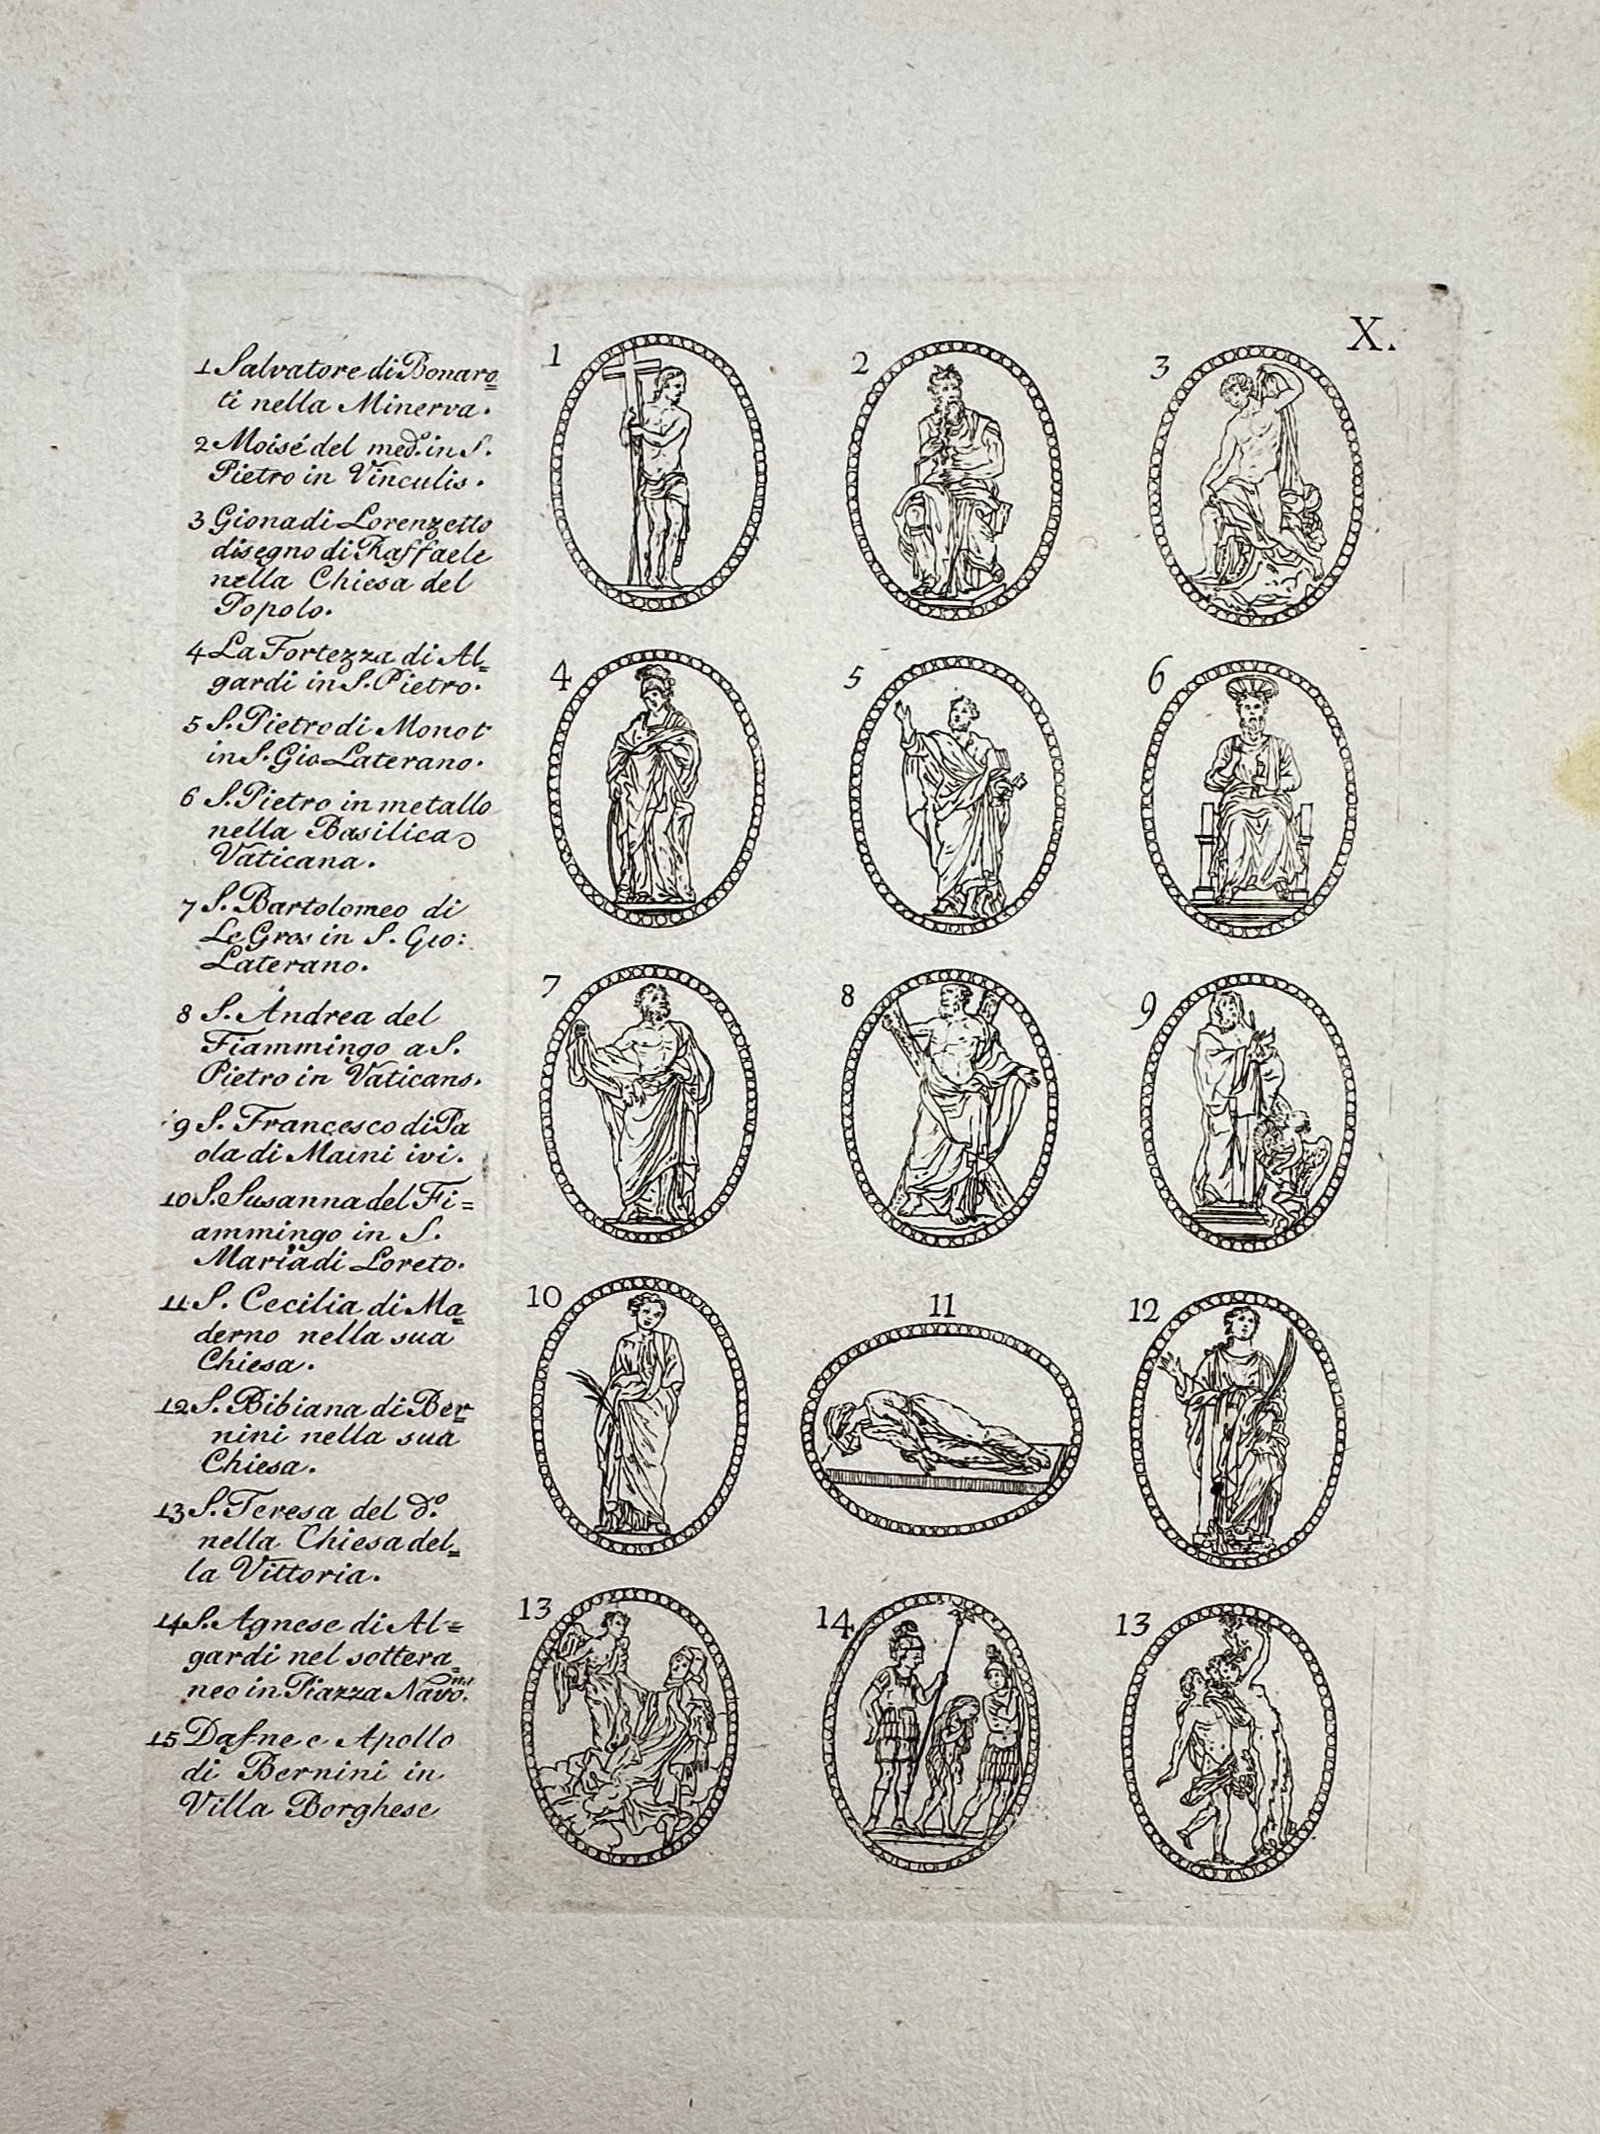 X.
1 Salvatore di Bonaro=
ti nella Minerva.
2 Moisé del med.º in S.
Pietro in Vinculis.
3 Giona di Lorenzetto
disegno di Raffaele
nella Chiesa del
Popolo.
4 La Fortezza di Al=
gardi in S. Pietro.
5 S. Pietro di Monot
in S. Gio Laterano.
6 S. Pietro in metallo
nella Basilica
Vaticana.
7 S. Bartolomeo di
Le Gros in S. Gio:
Laterano.
8 S. Andrea del
Fiammingo a S.
Pietro in Vaticano.
9 S. Francesco di Pa
ola di Maini ivi.
10 S. Susanna del Fi=
ammingo in S.
Maria di Loreto.
11 S. Cecilia di Ma=
derno nella sua
Chiesa.
12 S. Bibiana di Ber=
nini nella sua
Chiesa.
13 S. Teresa del d.º
nella Chiesa del=
la Vittoria.
14 S. Agnese di Al=
gardi nel sottera=
neo in Piazza Navo.na
15 Dafne e Apollo
di Bernini in
Villa Borghese
1 2 3
4 5 6
7 8 9
10 11 12
13 14 13